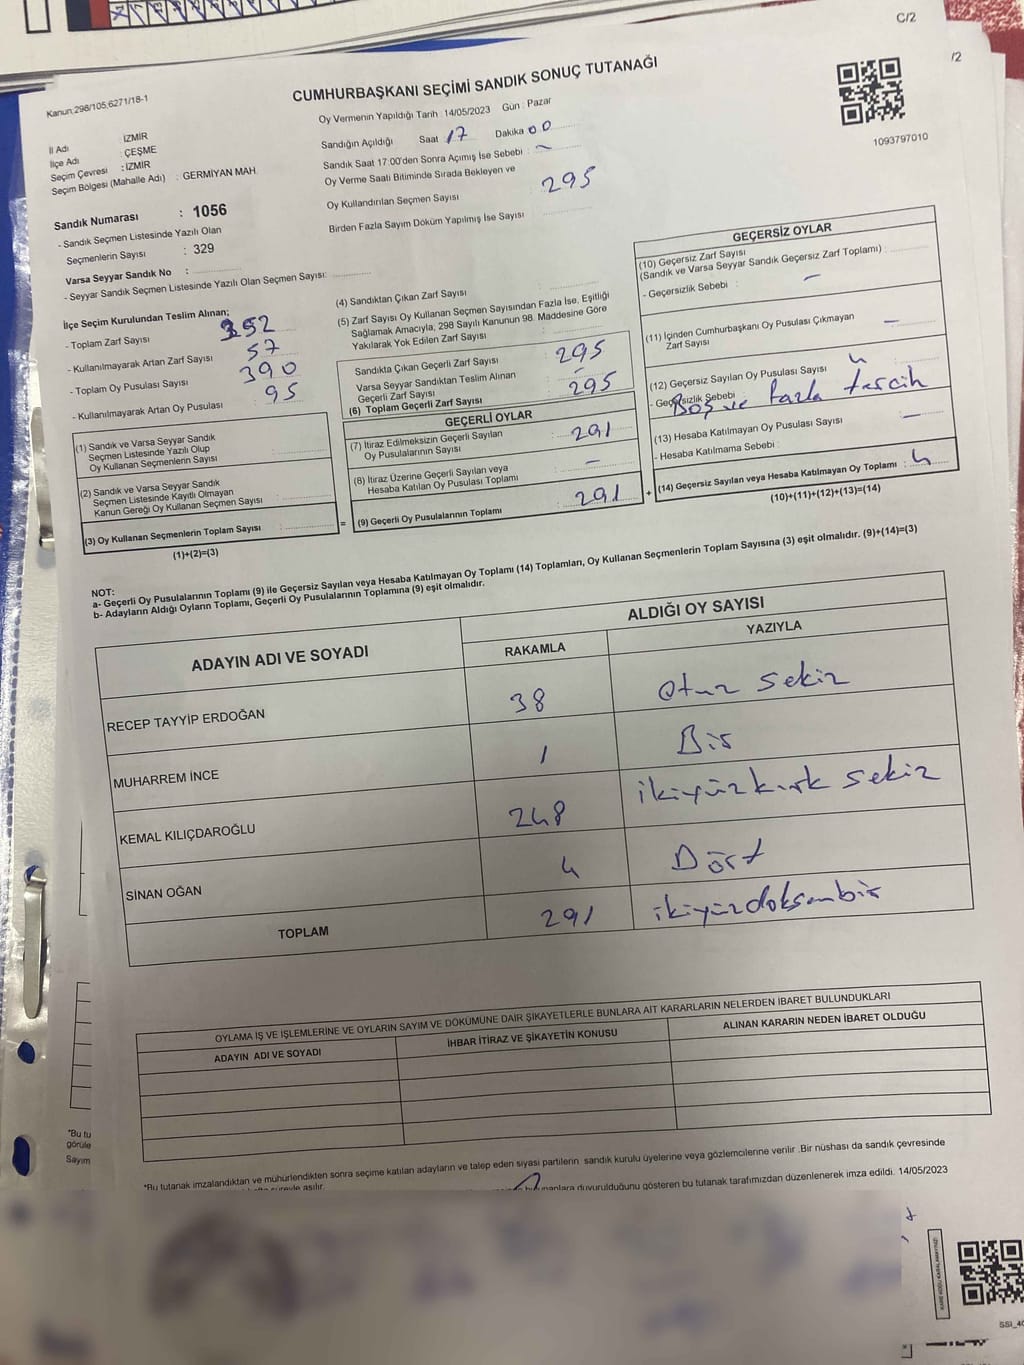 C/2
/2
Kanun:298/105,6271/18-1
CUMHURBAŞKANI SEÇİMİ SANDIK SONUÇ TUTANAĞI
1093797010
İl Adı : İZMİR
İlçe Adı : ÇEŞME
Seçim Çevresi : İZMİR
Seçim Bölgesi (Mahalle Adı) : GERMİYAN MAH.
Sandık Numarası : 1056
- Sandık Seçmen Listesinde Yazılı Olan
Seçmenlerin Sayısı : 329
Varsa Seyyar Sandık No :
- Seyyar Sandık Seçmen Listesinde Yazılı Olan Seçmen Sayısı:
Oy Vermenin Yapıldığı Tarih : 14/05/2023 Gün : Pazar
Sandığın Açıldığı Saat 17 Dakika 00
Sandık Saat 17:00'den Sonra Açımış İse Sebebi : -
Oy Verme Saati Bitiminde Sırada Bekleyen ve
Oy Kullandırılan Seçmen Sayısı 295
Birden Fazla Sayım Döküm Yapılmış İse Sayısı
İlçe Seçim Kurulundan Teslim Alınan;
- Toplam Zarf Sayısı 352
- Kullanılmayarak Artan Zarf Sayısı 57
- Toplam Oy Pusulası Sayısı 390
- Kullanılmayarak Artan Oy Pusulası 95
(1) Sandık ve Varsa Seyyar Sandık
Seçmen Listesinde Yazılı Olup
Oy Kullanan Seçmenlerin Sayısı :
(2) Sandık ve Varsa Seyyar Sandık
Seçmen Listesinde Kayıtlı Olmayan
Kanun Gereği Oy Kullanan Seçmen Sayısı :
(3) Oy Kullanan Seçmenlerin Toplam Sayısı : =
(1)+(2)=(3)
(4) Sandıktan Çıkan Zarf Sayısı :
(5) Zarf Sayısı Oy Kullanan Seçmen Sayısından Fazla İse, Eşitliği
Sağlamak Amacıyla; 298 Sayılı Kanunun 98. Maddesine Göre
Yakılarak Yok Edilen Zarf Sayısı :
Sandıkta Çıkan Geçerli Zarf Sayısı : 295
Varsa Seyyar Sandıktan Teslim Alınan
Geçerli Zarf Sayısı : -
(6) Toplam Geçerli Zarf Sayısı : 295
GEÇERLİ OYLAR
(7) İtiraz Edilmeksizin Geçerli Sayılan
Oy Pusulalarının Sayısı : 291
(8) İtiraz Üzerine Geçerli Sayılan veya
Hesaba Katılan Oy Pusulası Toplamı : -
(9) Geçerli Oy Pusulalarının Toplamı : 291 +
GEÇERSİZ OYLAR
(10) Geçersiz Zarf Sayısı
(Sandık ve Varsa Seyyar Sandık Geçersiz Zarf Toplamı) :
- Geçersizlik Sebebi : -
(11) İçinden Cumhurbaşkanı Oy Pusulası Çıkmayan
Zarf Sayısı : -
(12) Geçersiz Sayılan Oy Pusulası Sayısı : 4
- Geçersizlik Sebebi : Boş ve fazla tercih
(13) Hesaba Katılmayan Oy Pusulası Sayısı : -
- Hesaba Katılmama Sebebi :
(14) Geçersiz Sayılan veya Hesaba Katılmayan Oy Toplamı : 4
(10)+(11)+(12)+(13)=(14)
NOT:
a- Geçerli Oy Pusulalarının Toplamı (9) ile Geçersiz Sayılan veya Hesaba Katılmayan Oy Toplamı (14) Toplamları, Oy Kullanan Seçmenlerin Toplam Sayısına (3) eşit olmalıdır. (9)+(14)=(3)
b- Adayların Aldığı Oyların Toplamı, Geçerli Oy Pusulalarının Toplamına (9) eşit olmalıdır.
ADAYIN ADI VE SOYADI ALDIĞI OY SAYISI
RAKAMLA YAZIYLA
RECEP TAYYİP ERDOĞAN 38 otuz sekiz
MUHARREM İNCE 1 Bir
KEMAL KILIÇDAROĞLU 248 ikiyüzkırk sekiz
SİNAN OĞAN 4 Dört
TOPLAM 291 ikiyüzdoksanbir
OYLAMA İŞ VE İŞLEMLERİNE VE OYLARIN SAYIM VE DÖKÜMÜNE DAİR ŞİKAYETLERLE BUNLARA AİT KARARLARIN NELERDEN İBARET BULUNDUKLARI
ADAYIN ADI VE SOYADI İHBAR İTİRAZ VE ŞİKAYETİN KONUSU ALINAN KARARIN NEDEN İBARET OLDUĞU
*Bu tu
görüle
Sayım
*Bu tutanak imzalandıktan ve mühürlendikten sonra seçime katılan adayların ve talep eden siyasi partilerin sandık kurulu üyelerine veya gözlemcilerine verilir .Bir nüshası da sandık çevresinde
süreyle asılır. bulunanlara duyurulduğunu gösteren bu tutanak tarafımızdan düzenlenerek imza edildi. 14/05/2023